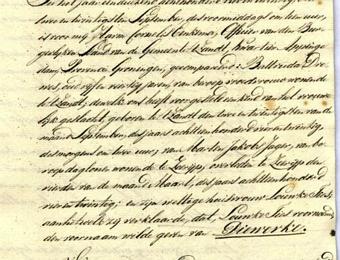 In het jaar een duizend achthonderd vier en twintig, den
twee en twintigsten September, des voormiddags om tien uur,
is voor mij Harm Cornelis Onkema, Officier van den Bur-
gerlijken Stand van de Gemeente 't Zandt,
Provincie Groningen, gecompareerd
oud vijf en veertig jaren, van beroep vroedvrouw wonende
te 't Zandt, dewelke ons heeft voorgesteld een kind van het vrouwe-
lijk geslacht, geboren te 't Zandt den twee en twintigsten van de
maand September, des jaars achttienhonderd vier en twintig,
des morgens om twee uur, van Marten Jakobs Jager, van be-
roep dagloner wonende te Zeerijp, overleden te Zeerijp den
van de maand Maart, des jaars achttienhonderd
vier en twintig; en zijn wettige huisvrouw
aan hetwelk zij verklaarde, dat, voornoemd
den voornaam wilde geven van Diewerke.